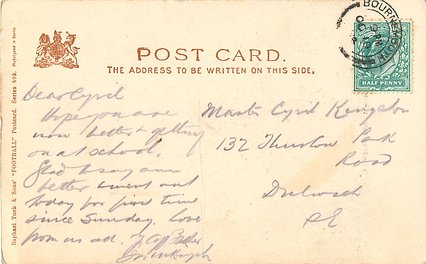 BOURNEMOUTH
POST CARD.
THE ADDRESS TO BE WRITTEN ON THIS SIDE.
HALF PENNY
Raphael Tuck & Sons' "FOOTBALL" Postcard. Series 899.
Dear Cyril
Hope you are
now better & getting
on at school.
Glad to say am
better & went out
today for first time
since Sunday. Love
from us all.
Master Cyril Kingston
132 Thurlow Park
Road
Dulwich
SE